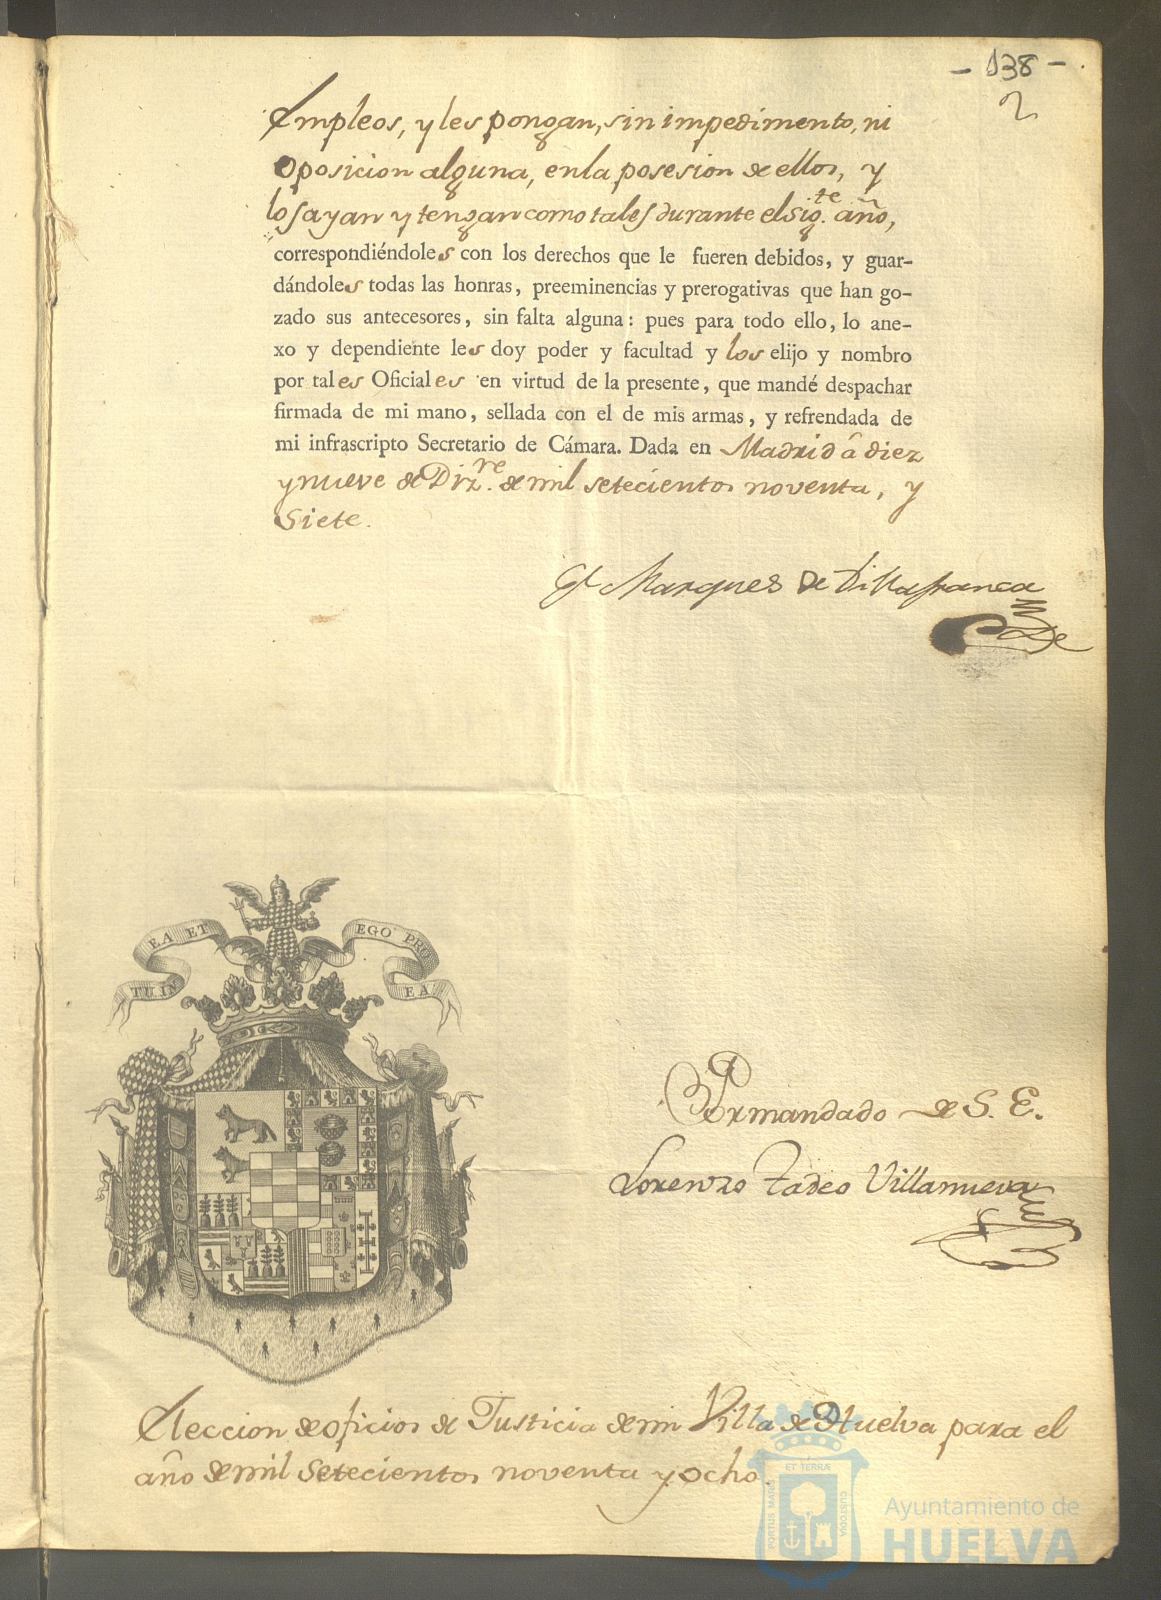 - 138 -
2
Empleos, y les pongan, sin impedimento, ni
oposicion alguna, en la posesion de ellos, y
los ayan y tengan como tales durante el sig.te año,
correspondiéndoles con los derechos que le fueren debidos, y guar-
dándoles todas las honras, preeminencias y prerogativas que han go-
zado sus antecesores, sin falta alguna: pues para todo ello, lo ane-
xo y dependiente les doy poder y facultad y los elijo y nombro
por tales Oficiales en virtud de la presente, que mandé despachar
firmada de mi mano, sellada con el de mis armas, y refrendada de
mi infrascripto Secretario de Cámara. Dada en Madrid â diez
y nueve de Diz.re de mil setecientos noventa, y
siete.
El Marques de Villafranca
TU IN EA ET EGO PRO EA
Por mandado de S. E.
Lorenzo Tadeo Villanueva
Eleccion de oficios de Justicia de mi Villa de Huelva para el
año de mil setecientos noventa y ocho.
PORTUS MARIS ET TERRÆ CUSTODIA
Ayuntamiento de
HUELVA